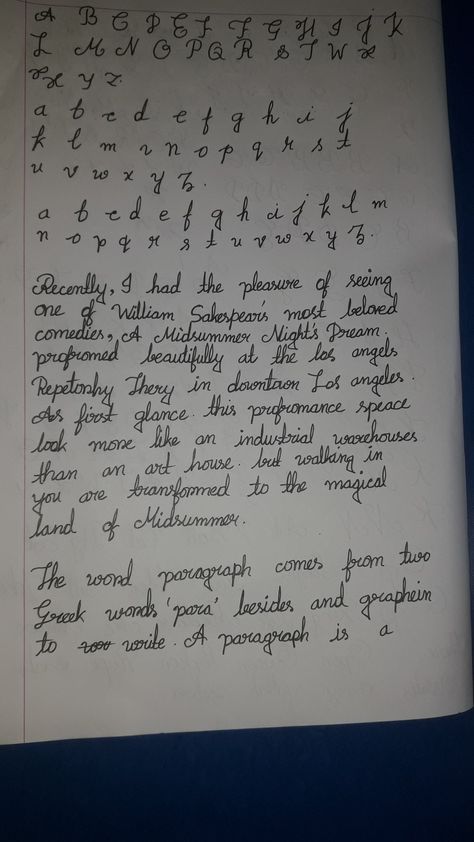 A B C D E F F G H I J K
L M N O P Q R S T W X
X X Y Z.
a b c d e f g h i j
k l m n n o p q r s t
u v w x y z.
a b c d e f g h i j k l m
n o p q r s t u v w x y z.
Recently, I had the pleasure of seeing
one of William Sakespear's most beloved
comedies, A Midsummer Night's Dream.
profromed beautifully at the los angels
Repetorhy Thery in downtaon Los angeles.
As first glance. this profromance speace
look more like an industrial warehouses
than an art house. but walking in
you are transformed to the magical
land of Midsummer.
The word paragraph comes from two
Greek words 'para' besides and graphein
to write. A paragraph is a